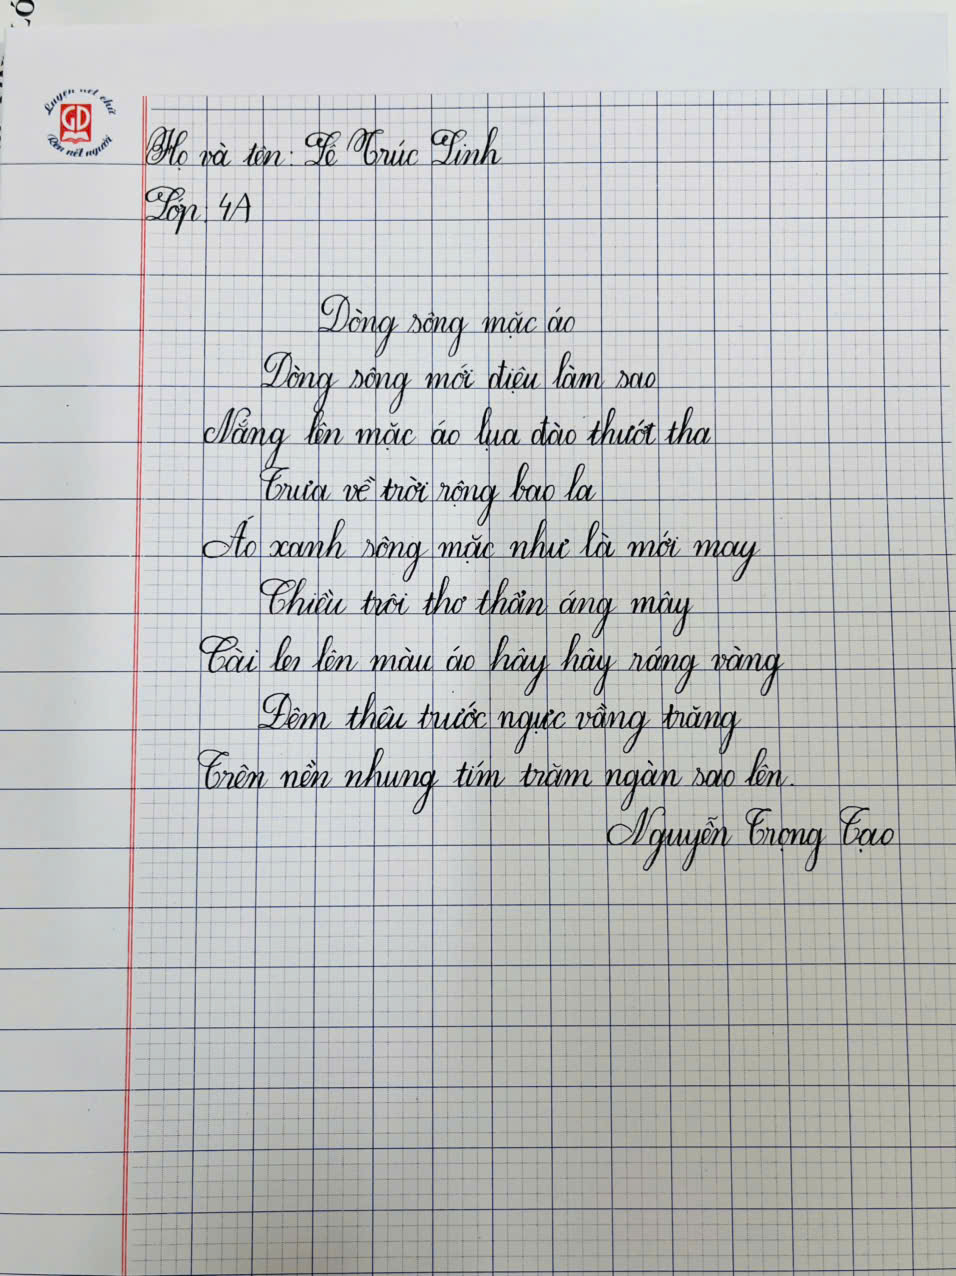 Luyện nét chữ
GD
Rèn nết người
Họ và tên: Lê Trúc Linh
Lớp: 4A
Dòng sông mặc áo
Dòng sông mới điệu làm sao
Nắng lên mặc áo lụa đào thướt tha
Trưa về trời rộng bao la
Áo xanh sông mặc như là mới may
Chiều trôi thơ thẩn áng mây
Cài lên màu áo hây hây ráng vàng
Đêm thêu trước ngực vầng trăng
Trên nền nhung tím trăm ngàn sao lên.
Nguyễn Trọng Tạo